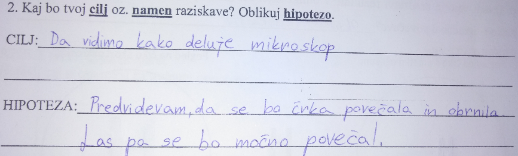 2. Kaj bo tvoj cilj oz. namen raziskave? Oblikuj hipotezo.
CILJ: Da vidimo kako deluje mikroskop
HIPOTEZA: Predvidevam, da se bo črka povečala in obrnila
Las pa se bo močno povečal.